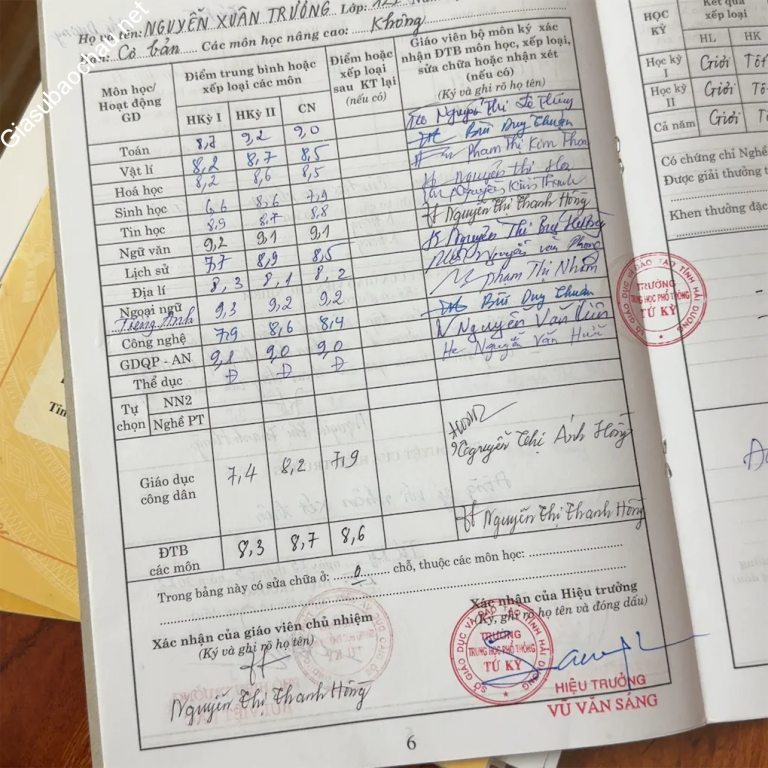 Họ và tên: NGUYỄN XUÂN TRƯỞNG Lớp:
Cơ bản Các môn học nâng cao: Không
Môn học/ Hoạt động GD
Điểm trung bình hoặc xếp loại các môn
HKỳ I HKỳ II CN
Điểm hoặc xếp loại sau KT lại (nếu có)
Giáo viên bộ môn ký xác nhận ĐTB môn học, xếp loại, sửa chữa hoặc nhận xét (nếu có)
(Ký và ghi rõ họ tên)
Toán 8,7 9,2 9,0 Nguyễn Thị Lệ Thủy
Vật lí 8,2 8,7 8,5 Bùi Duy Thuân
Hoá học 8,2 8,6 8,5 Phạm Thị Kim
Sinh học 6,6 8,6 7,9 Nguyễn Thị
Tin học 8,9 8,7 8,8 Nguyễn
Ngữ văn 9,2 9,1 9,1 Nguyễn Thị Thanh Hồng
Lịch sử 7,7 8,9 8,5 Nguyễn Thị
Địa lí 8,3 8,1 8,2 Nguyễn Văn Phong
Ngoại ngữ 9,3 9,2 9,2 Phạm Thị Nhâm
Tiếng Anh
Công nghệ 7,9 8,6 8,4 Bùi Duy Thuân
GDQP - AN 9,1 9,0 9,0 Nguyễn Văn
Thể dục Đ Đ Đ Nguyễn Văn
Tự chọn NN2
Nghề PT
Giáo dục công dân 7,4 8,2 7,9 Nguyễn Thị Ánh Hồng
ĐTB các môn 8,3 8,7 8,6 Nguyễn Thị Thanh Hồng
Trong bảng này có sửa chữa ở: 0 chỗ, thuộc các môn học:
Xác nhận của giáo viên chủ nhiệm
(Ký và ghi rõ họ tên)
Nguyễn Thị Thanh Hồng
Xác nhận của Hiệu trưởng
(Ký, ghi rõ họ tên và đóng dấu)
SỞ GIÁO DỤC VÀ ĐÀO TẠO TỈNH HẢI DƯƠNG
TRƯỜNG
TRUNG HỌC PHỔ THÔNG
TỨ KỲ
HIỆU TRƯỞNG
VŨ VĂN SÁNG
6
HỌC KỲ
Kết quả xếp loại
HL HK
Học kỳ I Giỏi Tốt
Học kỳ II Giỏi
Cả năm Giỏi
Có chứng chỉ Nghề
Được giải thưởng
Khen thưởng đặc
SỞ GIÁO DỤC VÀ ĐÀO TẠO TỈNH HẢI DƯƠNG
TRƯỜNG
TRUNG HỌC PHỔ THÔNG
TỨ KỲ
Giasubaochau.net